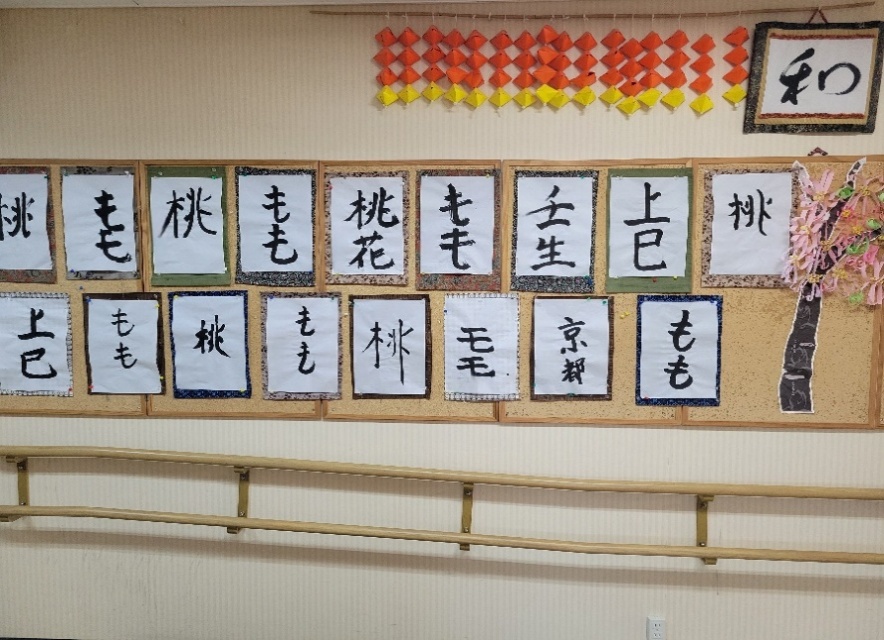 和
桃
もも
桃
もも
桃花
もも
壬生
上巳
桃
上巳
もも
桃
もも
桃
モモ
京都
もも